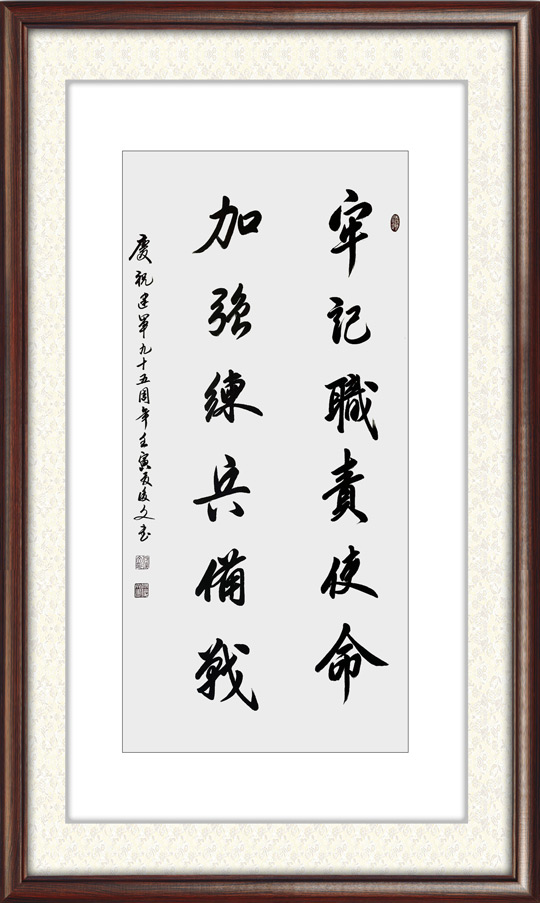 牢記職責使命
加强練兵備戰
慶祝建軍九十五周年壬寅夏俊文書